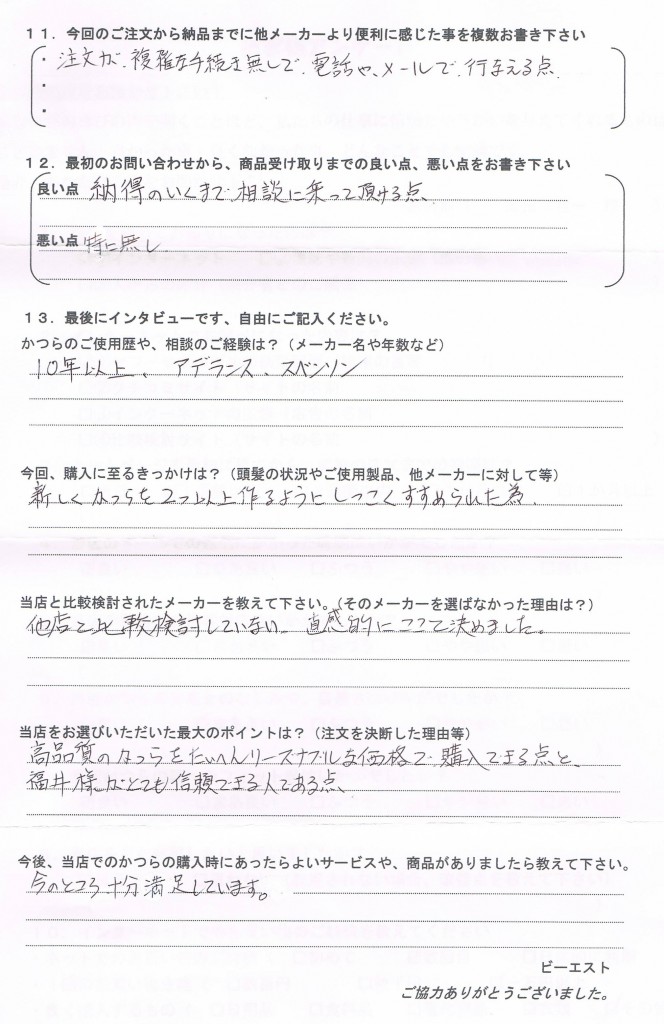 11．今回のご注文から納品までに他メーカーより便利に感じた事を複数お書き下さい
・注文が、複雑な手続き無しで、電話や、メールで、行なえる点、
・
・
12．最初のお問い合わせから、商品受け取りまでの良い点、悪い点をお書き下さい
良い点 納得のいくまで、相談に乗って頂ける点、
悪い点 特に無し
13．最後にインタビューです、自由にご記入ください。
かつらのご使用歴や、相談のご経験は？（メーカー名や年数など）
10年以上、アデランス、スベンソン
今回、購入に至るきっかけは？（頭髪の状況やご使用製品、他メーカーに対して等）
新しくかつらを2つ以上作るようにしつこくすすめられた為、
当店と比較検討されたメーカーを教えて下さい。（そのメーカーを選ばなかった理由は？）
他店と比較検討していない。直感的にここで決めました。
当店をお選びいただいた最大のポイントは？（注文を決断した理由等）
高品質のかつらをたいへんリーズナブルな価格で、購入できる点と、
福井様がとても信頼できる人である点、
今後、当店でのかつらの購入時にあったらよいサービスや、商品がありましたら教えて下さい。
今のところ十分満足しています。
ビーエスト
ご協力ありがとうございました。